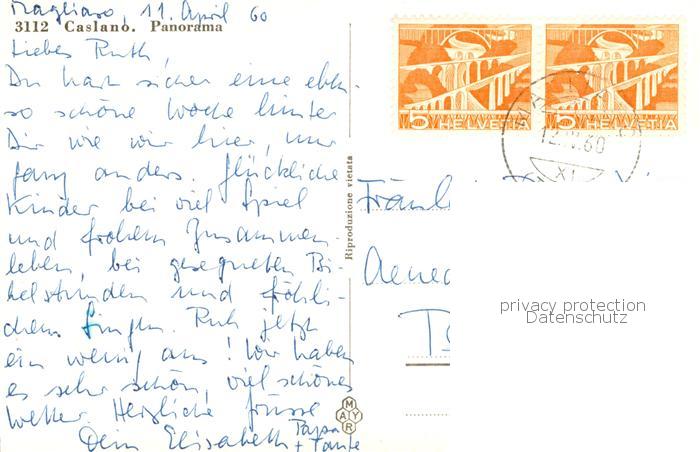 Magliaso, 11. April 60
3112 Caslano. Panorama
Liebes Ruth
Du hast sicher eine eben-
so schöne Woche hinter
Dir wie wir hier, nur
ganz anders. Glückliche
Kinder bei viel Spiel
und frohem Zusammen-
leben, bei gesegneten Bi-
belstunden und fröhli-
chem Singen. Ruh jetzt
ein wenig aus! Wir haben
es sehr schön, viel schönes
Wetter. Herzliche Grüsse
Dein Elisabeth Papa
+ Tante
Riproduzione vietata
MAYR
5 HELVETIA
5 HELVETIA
12.IV.60
XI
Fräul
Aened
privacy protection
Datenschutz